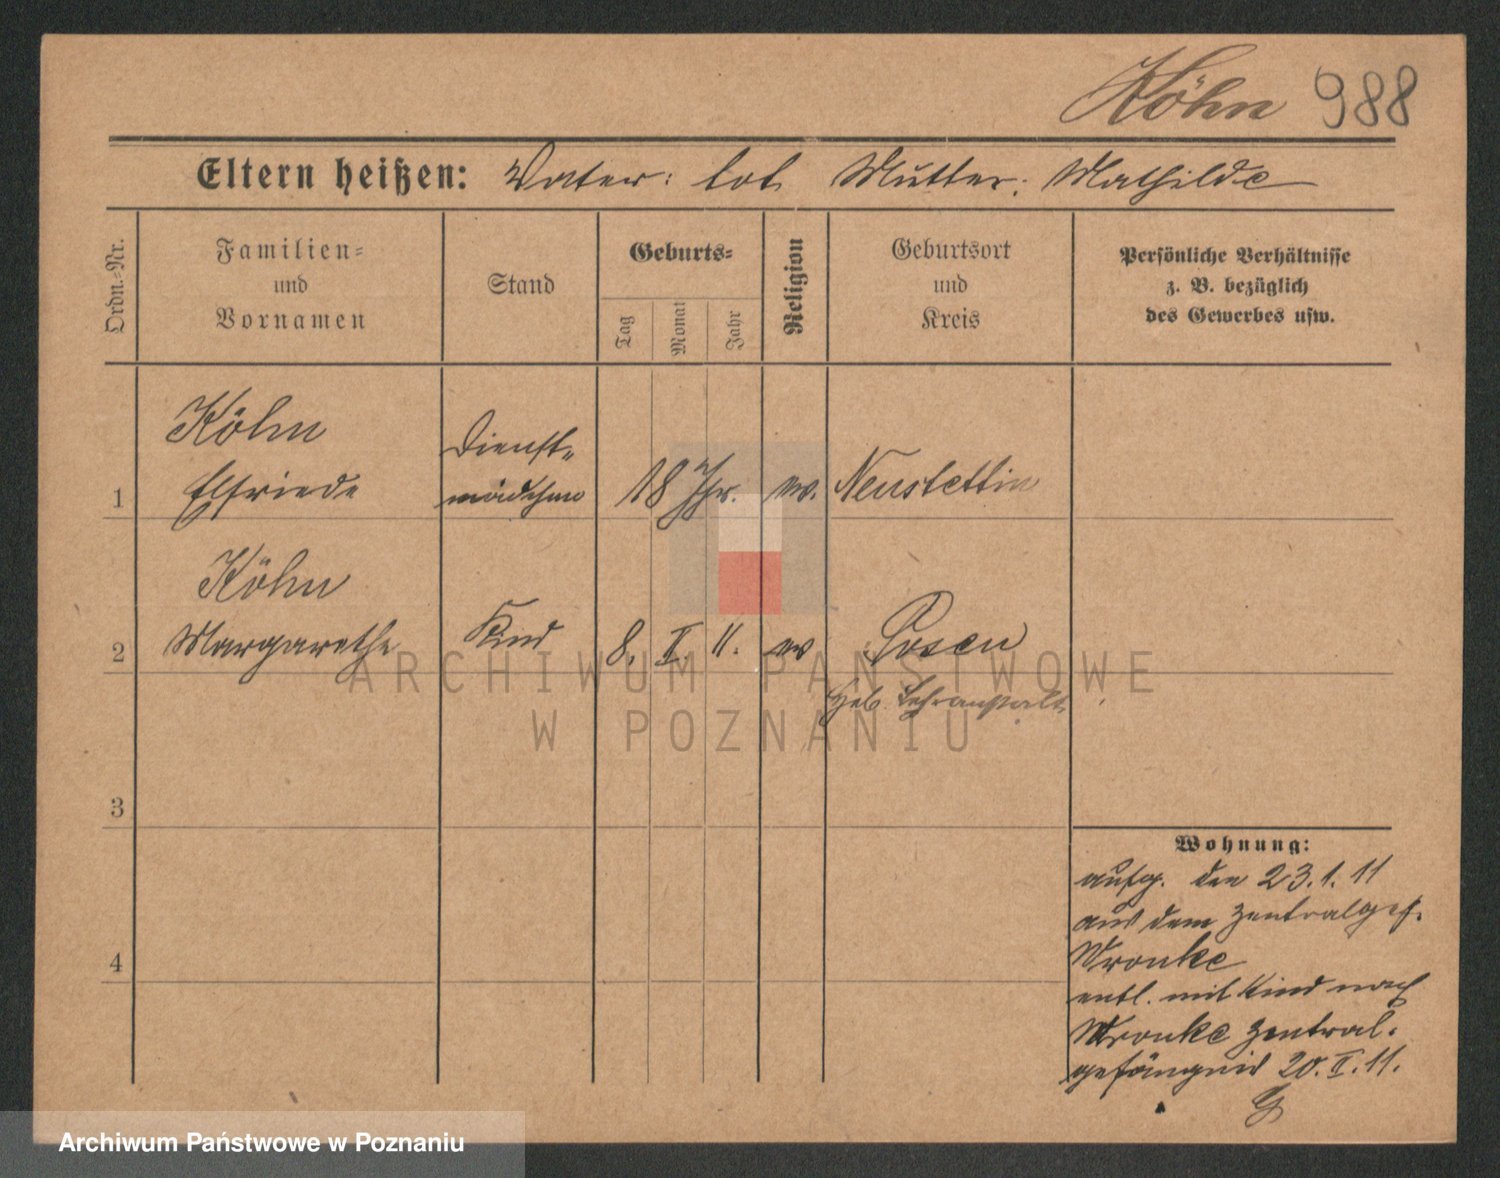 Köhn 988
Eltern heißen: Vater: tot Mutter: Mathilde
Ordn.-Nr.
Familien-
und
Vornamen
Stand
Geburts-
Tag
Monat
Jahr
Religion
Geburtsort
und
Kreis
Persönliche Verhältnisse
z. B. bezüglich
des Gewerbes usw.
1
Köhn
Elfriede
Dienst-
mädchen
18 Jhr.
ev.
Neustettin
2
Köhn
Margarethe
Kind
8. II. 11.
ev
Posen
Heb. Lehranstalt
3
4
Wohnung:
aufg. den 23.1.11
aus dem Zentralgef.
Wronke
entl. mit Kind nach
Wronke Zentral-
gefängnis 20.II.11.
ARCHIWUM PAŃSTWOWE
W POZNANIU
Archiwum Państwowe w Poznaniu